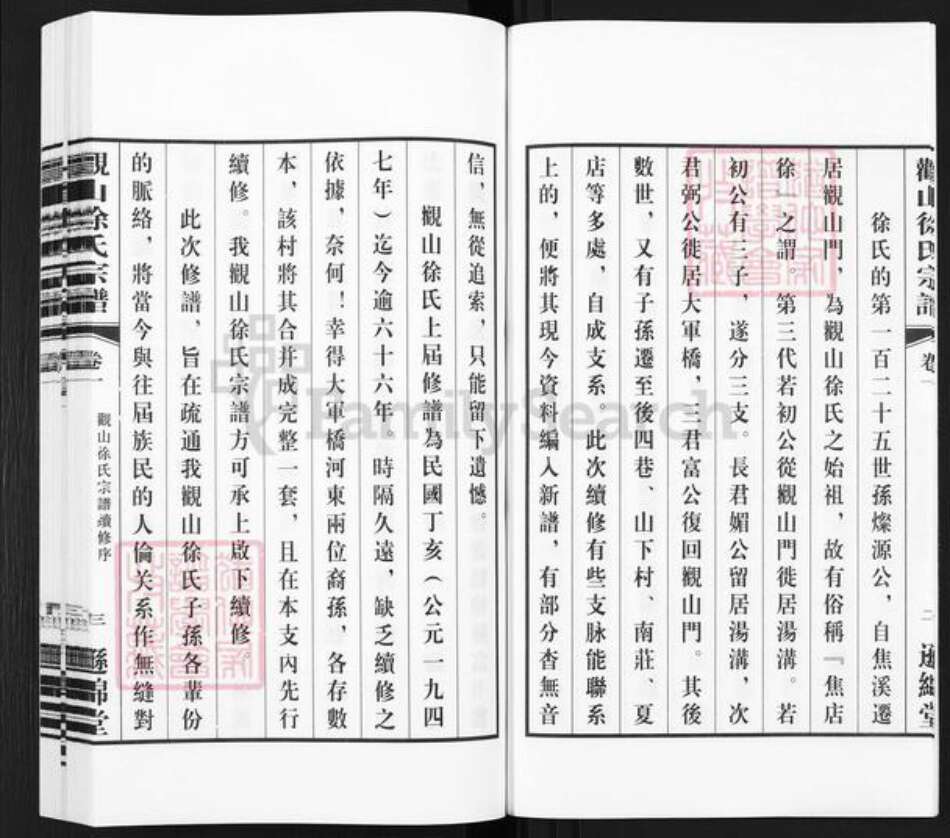 觀山徐氏宗譜
卷一
二
遜綿堂
徐氏的第一百二十五世孫燦源公，自焦溪遷
居觀山門，為觀山徐氏之始祖，故有俗稱『焦店
徐』之謂。第三代若初公從觀山門徙居湯溝。若
初公有三子，遂分三支。長君媚公留居湯溝，次
君弼公徙居大軍橋，三君富公復回觀山門。其後
數世，又有子孫遷至後四巷、山下村、南莊、夏
店等多處，自成支系。此次續修有些支脉能聯系
上的，便將其現今資料編入新譜，有部分杳無音
信，無從追索，只能留下遺憾。
觀山徐氏上屆修譜為民國丁亥（公元一九四
七年）迄今逾六十六年。時隔久遠，缺乏續修之
依據，奈何！幸得大軍橋河東兩位裔孫，各存數
本，該村將其合并成完整一套，且在本支內先行
續修。我觀山徐氏宗譜方可承上啟下續修。
此次修譜，旨在疏通我觀山徐氏子孫各輩份
的脈絡，將當今與往屆族民的人倫关系作無縫對
觀山徐氏宗譜
卷一
觀山徐氏宗譜續修序
三
遜綿堂
FamilySearch